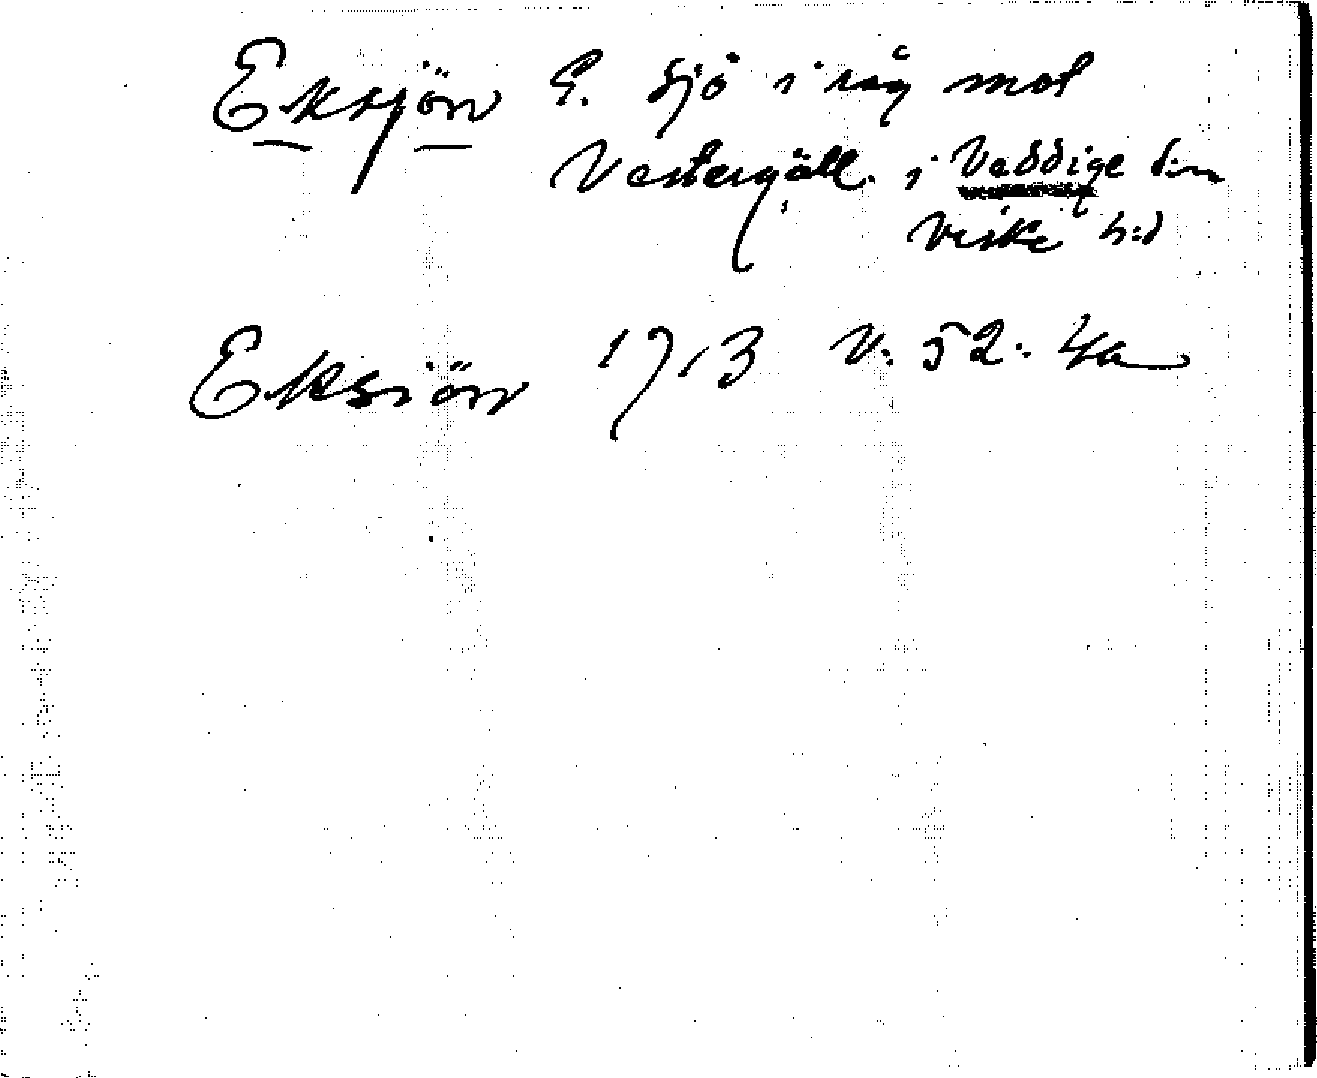 Eksjön E. Sjö i råg mot
Vestergöll. i Veddige s:n
Viske h:d
Eksiön 1713 V. 52. 4a